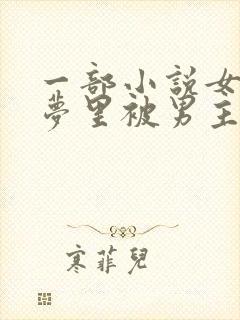 一部小説女
夢里被男主
寒菲兒